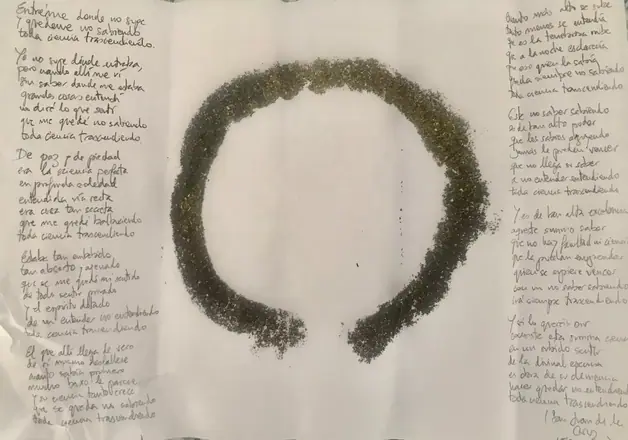 Entréme donde no supe
Y quedeme no sabiendo
toda ciencia trascendiendo.
Yo no supe dónde entraba,
pero cuando allí me vi
sin saber donde me estaba
grandes cosas entendí
no diré lo que sentí
que me quedé no sabiendo
toda ciencia trascendiendo
De paz y de piedad
era la ciencia perfecta
en profunda soledad
entendida vía recta
era cosa tan secreta
que me quedé balbuciendo
toda ciencia trascendiendo
Estaba tan embebido
tan absorto y ajenado
que se me quedó mi sentido
de todo sentir privado
y el espíritu dotado
de un entender no entendiendo
toda ciencia trascendiendo
El que allí llega de vero
de sí mismo desfallece
cuanto sabía primero
mucho bajo le parece
y su ciencia tanto crece
que se queda no sabiendo
toda ciencia trascendiendo
Cuanto más alto se sube
tanto menos se entendía
que es la tenebrosa nube
que a la noche esclarecía
por eso quien la sabía
queda siempre no sabiendo
toda ciencia trascendiendo
Este no saber sabiendo
es de tan alto poder
que los sabios arguyendo
jamás le pueden vencer
que no llega su saber
a no entender entendiendo
toda ciencia trascendiendo
Y es de tan alta excelencia
aqueste sumo saber
que no hay facultad ni ciencia
que le puedan emprender
quien se supiere vencer
con un no saber sabiendo
irá siempre trascendiendo
Y si lo queréis oir
consiste esta summa ciencia
en un subido sentir
de la divinal esencia
es obra de su clemencia
hacer quedar no entendiendo
toda ciencia trascendiendo
(San Juan de la
Cruz)